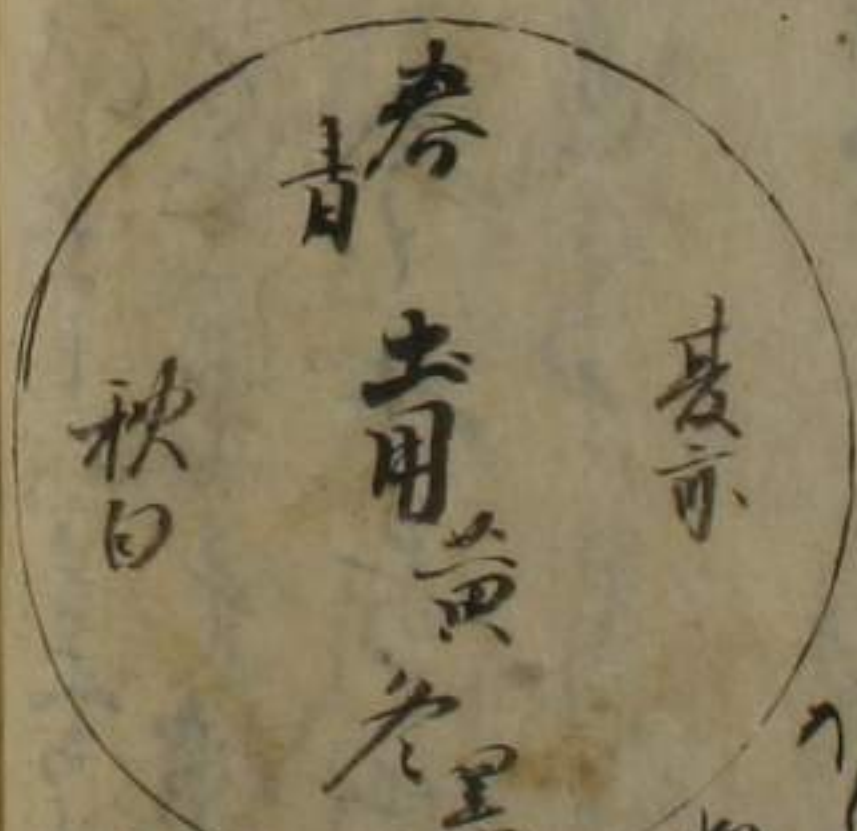 春
青
夏赤
土用
黄
秋白
冬
黒